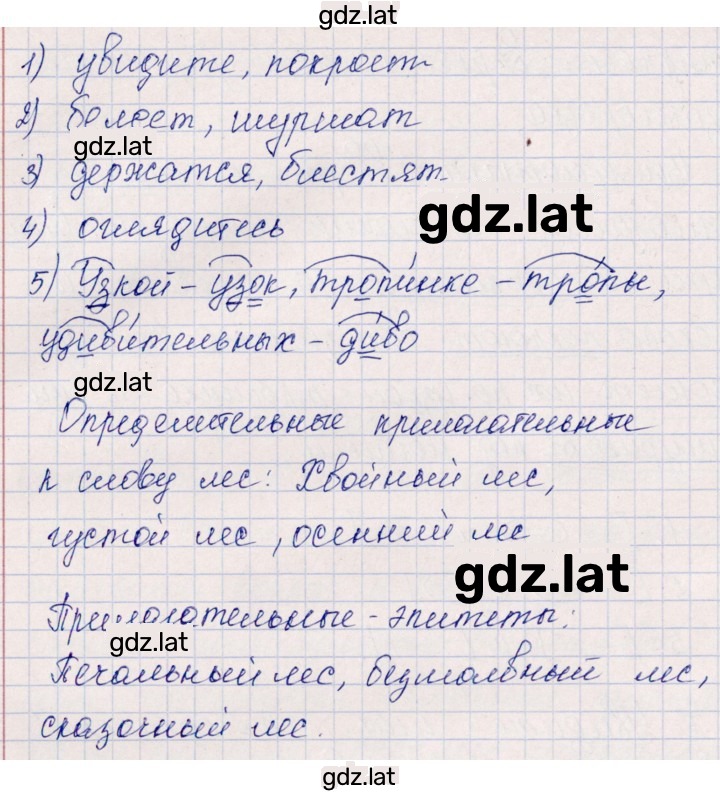 gdz.lat
1) увидите, покроет
2) белеет, шуршат
gdz.lat
3) держатся, блестят
gdz.lat
4) оглядитесь
5) Узкой - узок, тропинке - тропы,
удивительных - диво
gdz.lat
Определительные прилагательные
к слову лес: Хвойный лес,
густой лес, осенний лес
gdz.lat
Прилагательные - эпитеты:
gdz.lat
Печальный лес, безмолвный лес,
сказочный лес.
gdz.lat